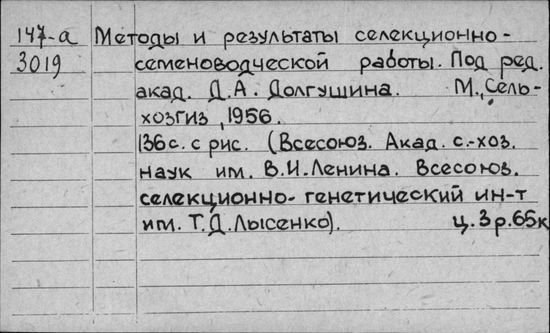 147-а Методы и результаты селекционно-
3019 семеноводческой работы. Под ред.
акад. Д.А. Долгушина. М., Сель-
хозгиз, 1956.
136 с. с рис. (Всесоюз. Акад. с.-хоз.
наук им. В.И. Ленина. Всесоюз.
селекционно-генетический ин-т
им. Т.Д. Лысенко). ц. 3 р. 65к